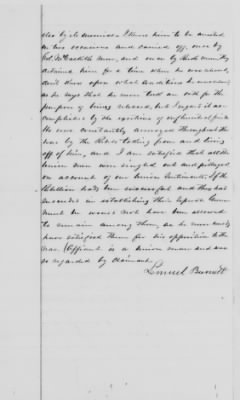 also by & I knew him to be arrested
on two occasions and carried off, once by
Col. men, and once by
detained him for a time when he was released,
don't know upon what conditions he was released,
as he says that he never took an oath for the
purpose of being released, but I regard it as
accomplished by the of influential friends
He was constantly annoyed throughout the
war by the Rebs taking from and living
off of him, and I am satisfied that all the
Union men were singled out and pillaged
on account of our Union Sentiments. If the
Rebellion had been successful and they had
succeeded in establishing their Government
he would not have been allowed
to remain among them, as he never could
have satisfied them for his opposition to the
war. Affiant is a Union man and was
so regarded by Claimant.
Lemuel Burnett